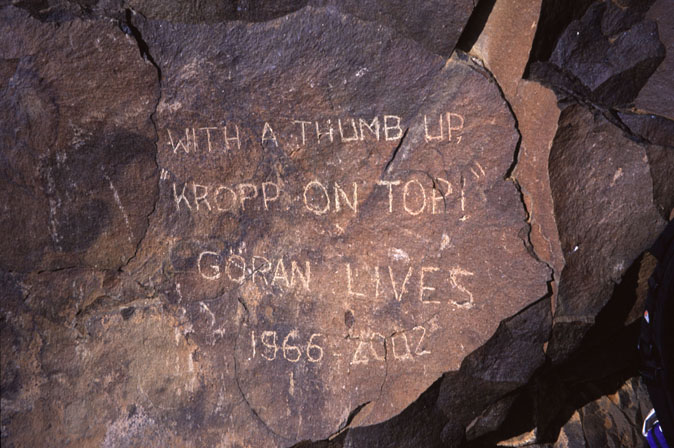 WITH A THUMB UP,
"KROPP ON TOP!"
GÖRAN LIVES
1966-2002